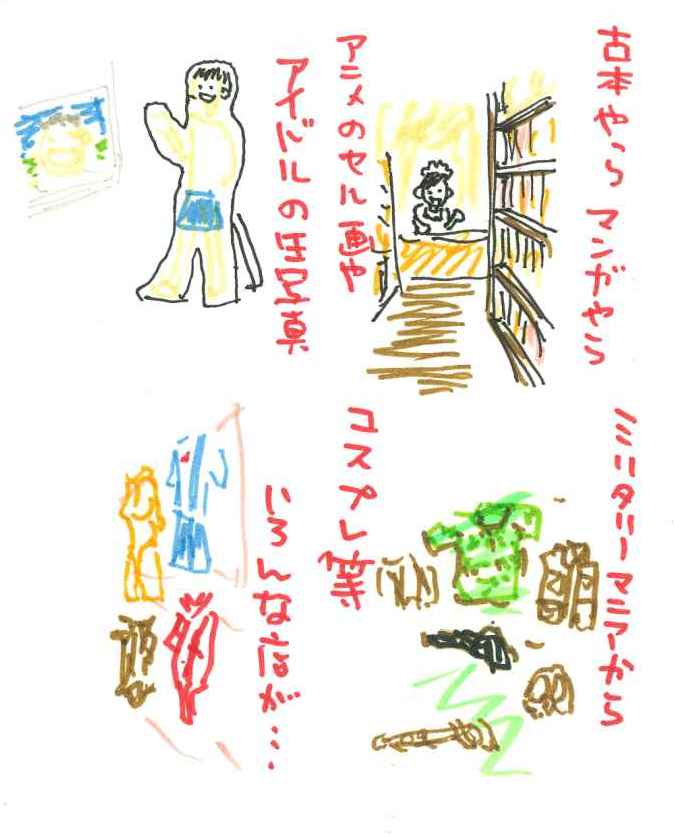 古本やら マンガやら
アニメのセル画や
アイドルの生写真
ミリタリーマニアから
コスプレ等
いろんな店が…